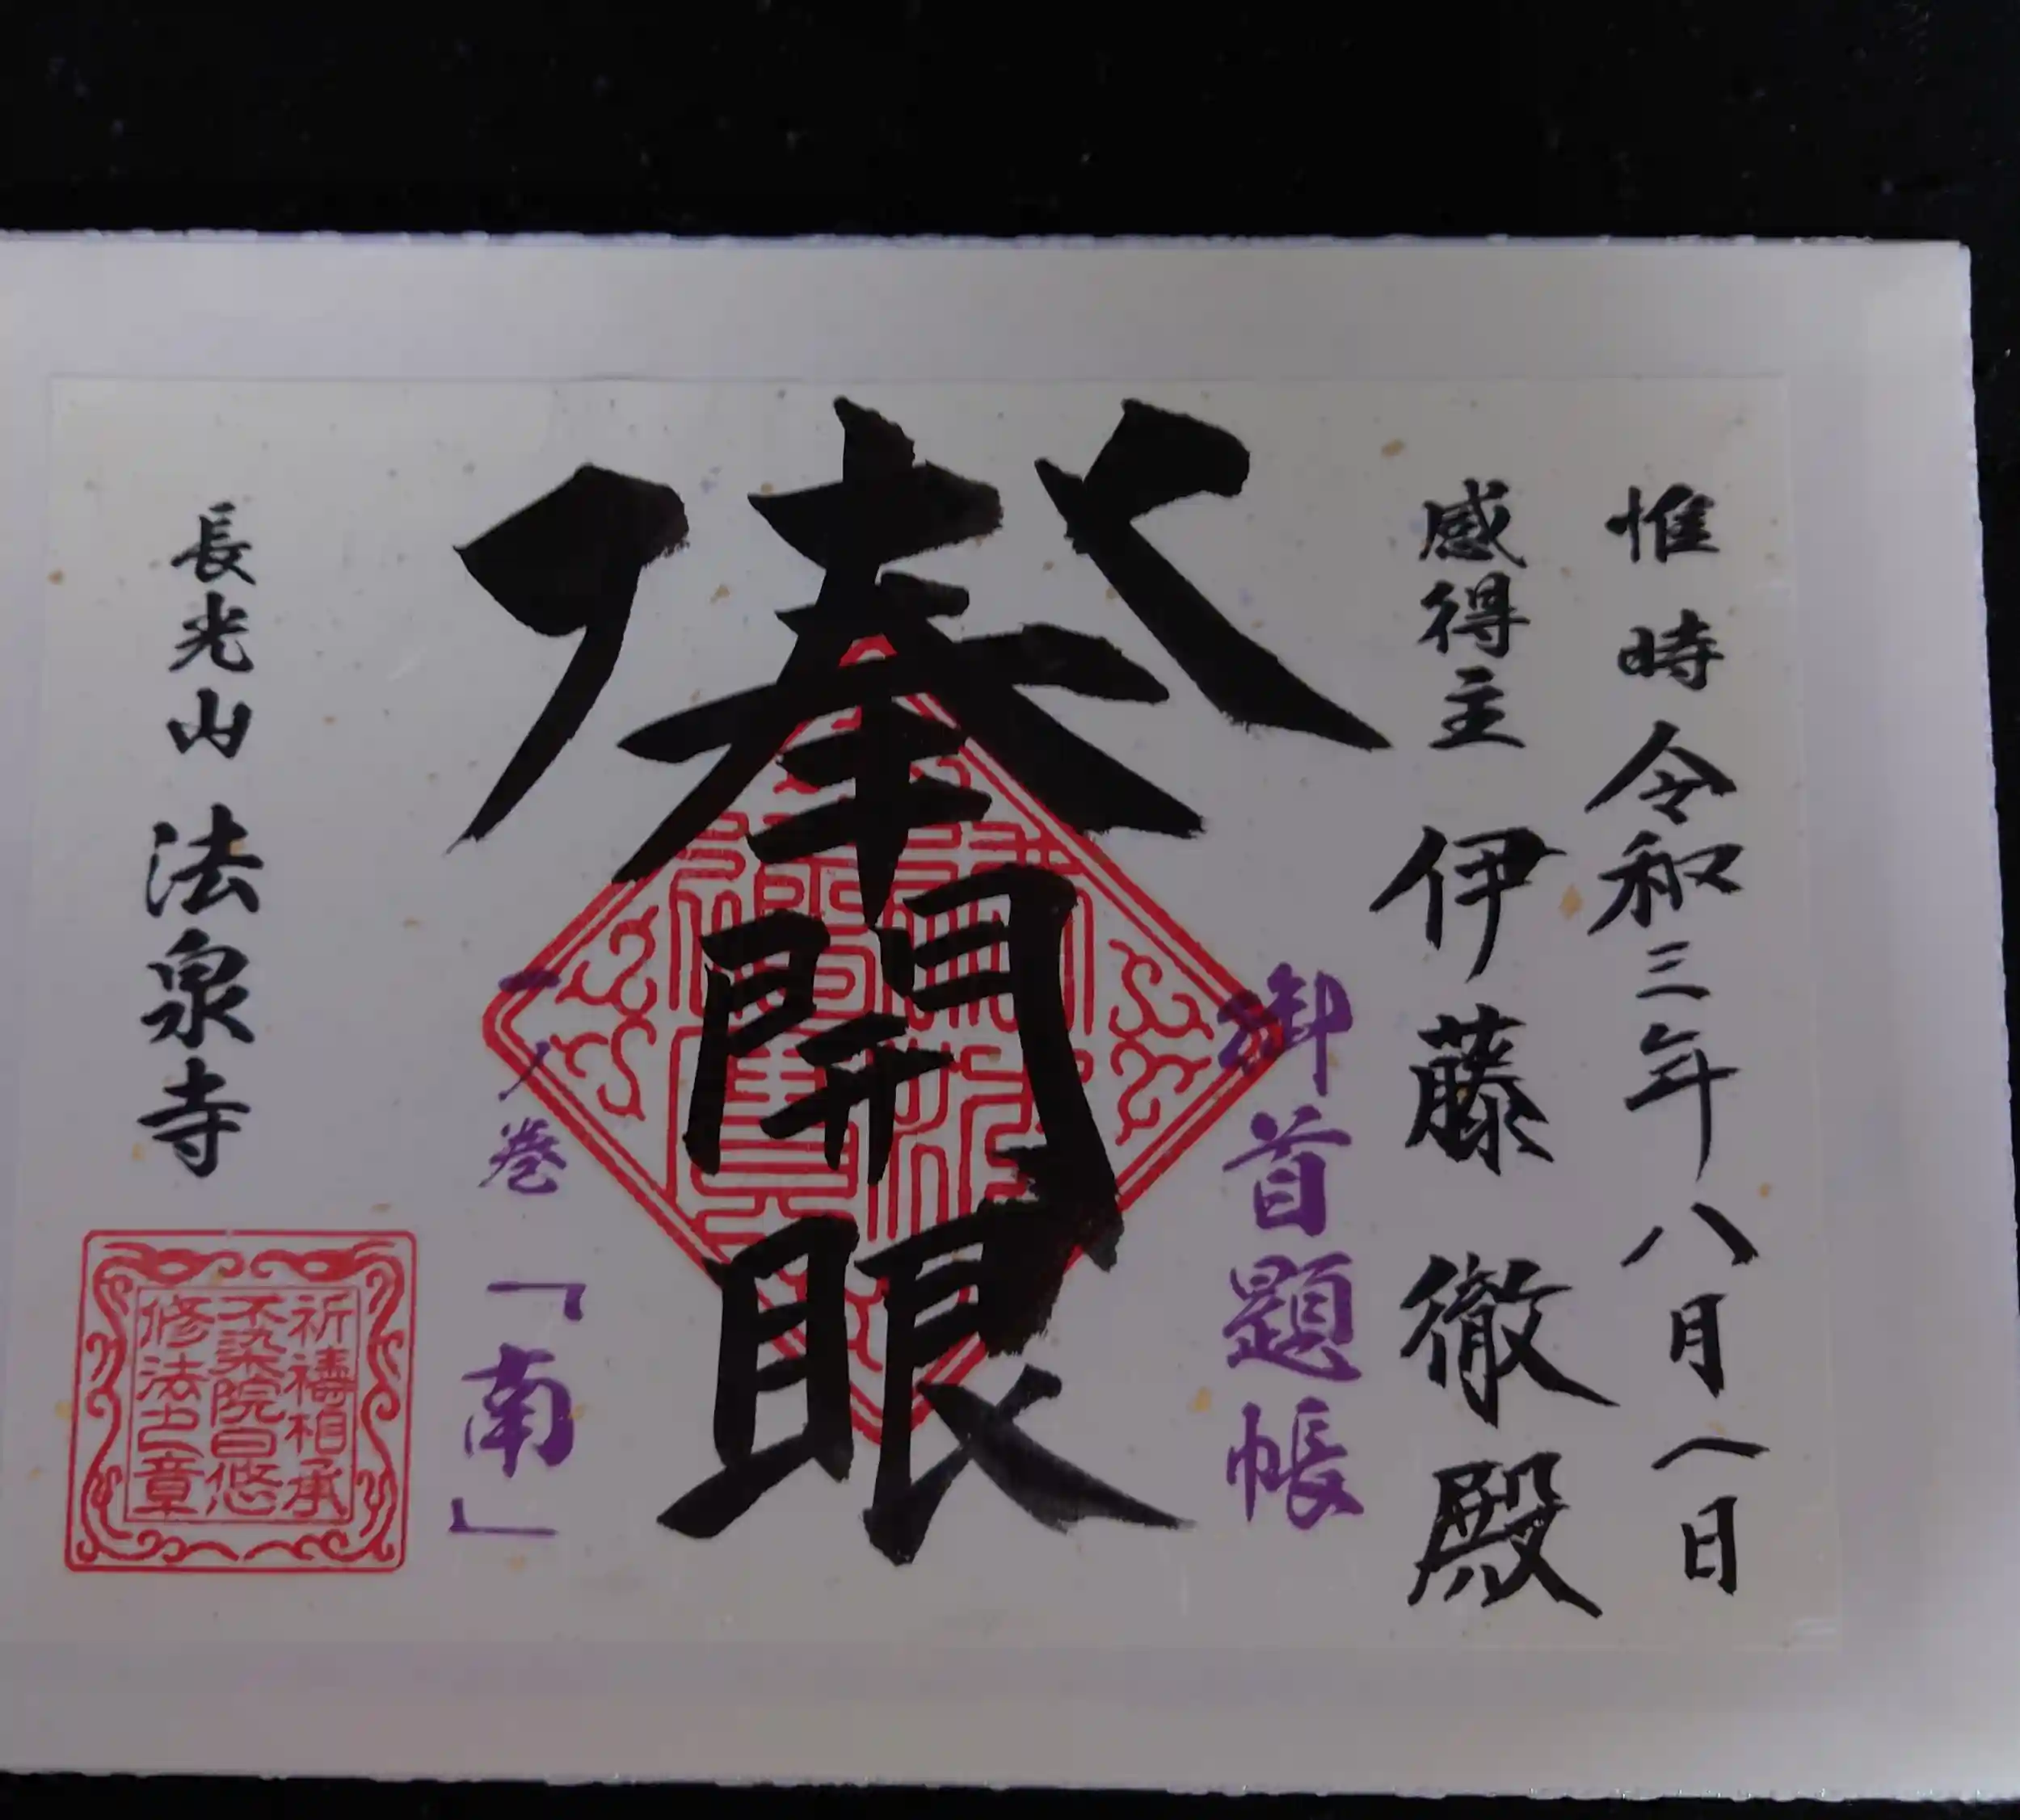 惟時 令和三年八月八日
感得主 伊藤徹殿
御首題帳
奉開眼
一ノ巻「南」
長光山 法泉寺
祈禱相承
不染院日悠
修法之章